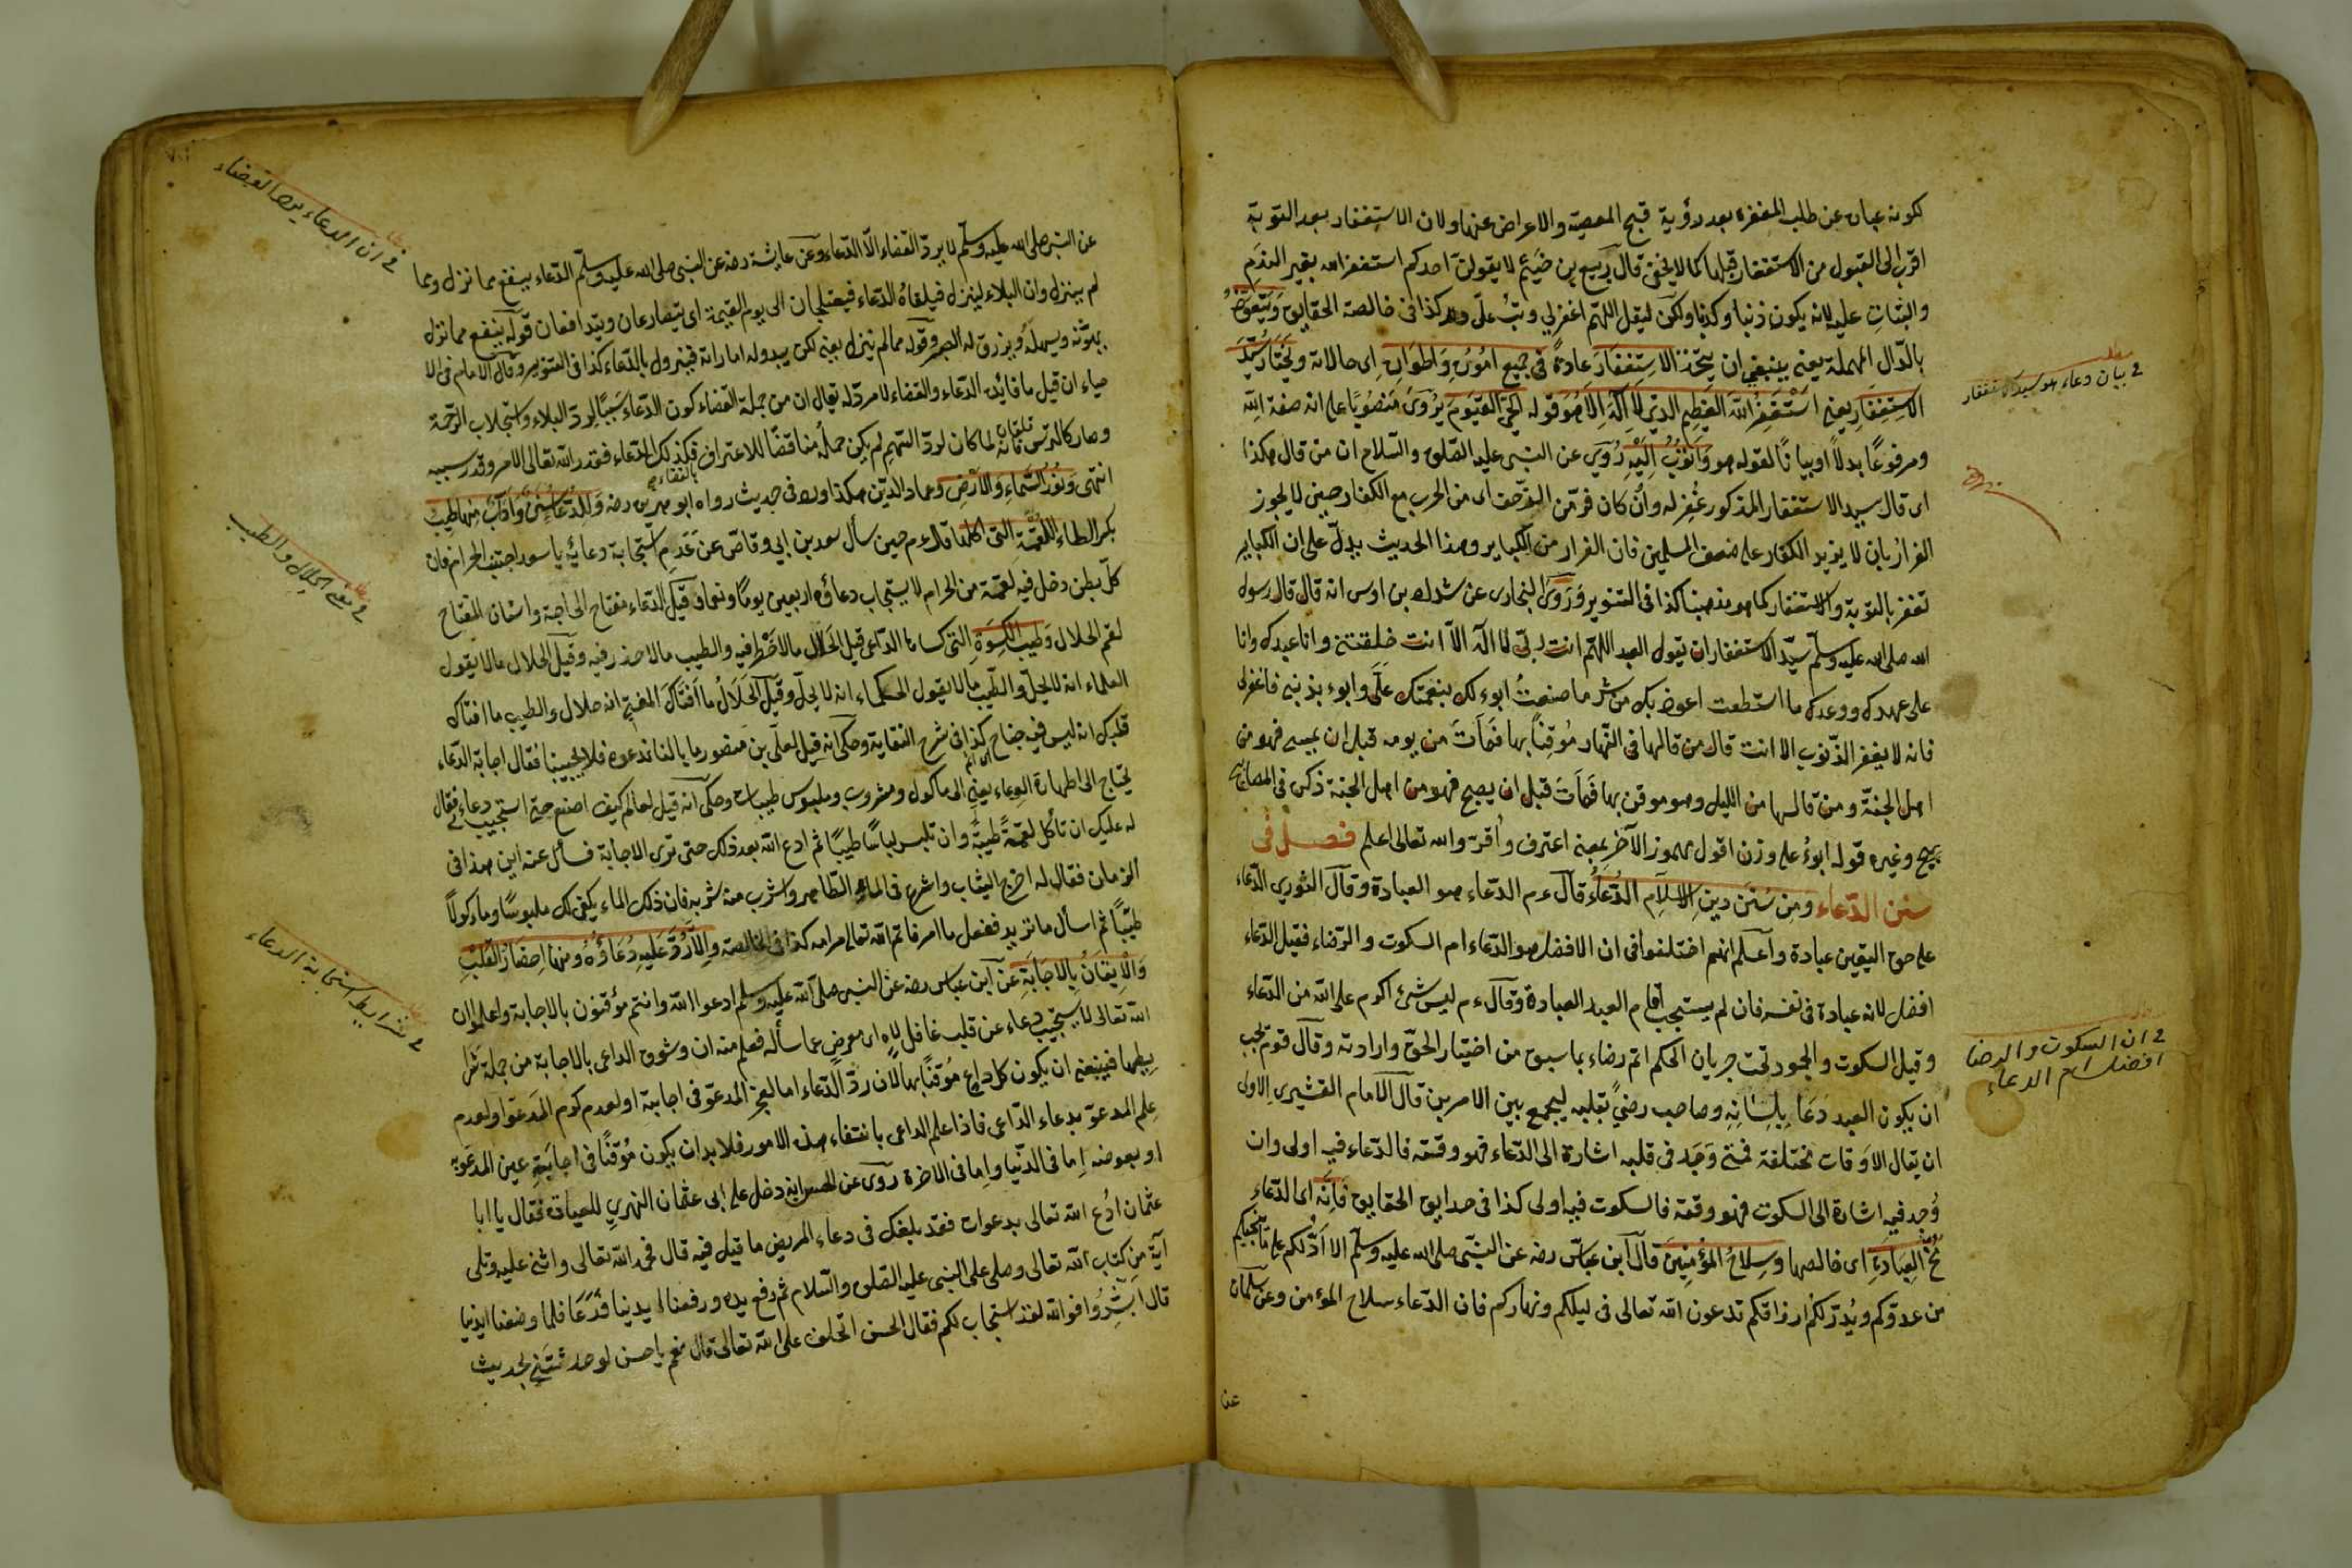 لكونه عبارة عن طلب المغفرة بعد رؤية قبح المعصية والاعراض عنها ولان الاستغفار بعد التوبة
اقرب الى القبول من الاستغفار قبلها كما لا يخفى قال ربيع بن خيثم لا يقولن احدكم استغفر الله بغير الندم
والثبات عليه لانه يكون ذنبا وكذبا ولكن ليقل اللهم اغفرلي وتب علي كذا في خالصة الحقايق ويتعود
بالدال المهملة يعني ينبغي ان يتخذ الاستغفار عادة في جميع اموره واطواره اى حالاته ويختار سيد
الاستغفار يعني استغفر الله العظيم الذي لا اله الا هو قوله الحي القيوم يروى منصوبا على انه صفة الله
ومرفوعا بدلا او بيانا لقوله هو واتوب اليه روي عن النبي عليه الصلوة والسلام ان من قال هكذا
اى قال سيد الاستغفار المذكور غفر له وان كان فر من الزحف اى من الحرب مع الكفار حين لا يجوز
الفرار بان لا يزيد الكفار على ضعف المسلمين فان الفرار من الكباير وهذا الحديث يدل على ان الكباير
تغفر بالتوبة والاستغفار كما هو مذهبنا كذا في التنوير وروى البخارى عن شداد بن اوس انه قال قال رسول
الله صلى الله عليه وسلم سيد الاستغفار ان تقول العبد اللهم انت ربي لا اله الا انت خلقتني وانا عبدك وانا
على عهدك ووعدك ما استطعت اعوذ بك من شر ما صنعت ابوء لك بنعمتك علي وابوء بذنبي فاغفرلى
فانه لا يغفر الذنوب الا انت قال من قالها في النهار موقنا بها فمات من يومه قبل ان يمسى فهو من
اهل الجنة ومن قالها من الليل وهو موقن بها فمات قبل ان يصبح فهو من اهل الجنة ذكره في المصابيح
وغيره قوله ابوء على وزن اقول مهموز الآخر بمعنى اعترف واقر والله تعالى اعلم فصل في
سنن الدعاء ومن سنن دين الاسلام الدعاء قال ءم الدعاء هو العبادة وقال الثوري الدعاء
على حق اليقين عبادة واعلم انهم اختلفوا في ان الافضل هو الدعاء ام السكوت والرضاء فقيل الدعاء
افضل لانه عبادة في نفسه فان لم يستجب اقام العبد العبادة وقال ءم ليس شئ اكرم على الله من الدعاء
وقيل السكوت والجمود تحت جريان الحكم اتم رضاء بما سبق من اختيار الحق وارادته وقال قوم يجب
ان يكون العبد دعا بلسانه وصاحب رضي بقلبه ليجمع بين الامرين قال الامام القشيري الاولى
ان يقال الاوقات مختلفة فمتى وجد في قلبه اشارة الى الدعاء فهو وقته فالدعاء فيه اولى وان
وجد فيه اشارة الى السكوت فهو وقته فالسكوت فيه اولى كذا في حدايق الحقايق فانه اى الدعاء
مخ العبادة اى خالصها وسلاح المؤمنين قال ابن عباس رضه عن النبي صلى الله عليه وسلم الا ادلكم على ما ينجيكم
من عدوكم ويدر لكم ارزاقكم تدعون الله تعالى في ليلكم ونهاركم فان الدعاء سلاح المؤمن وعن سلمان
في بيان دعاء هو سيد الاستغفار
في ان السكوت والرضا
افضل ام الدعاء
عن النبي صلى الله عليه وسلم لا يرد القضاء الا الدعاء وعن عايشة رضه عن النبي صلى الله عليه وسلم الدعاء ينفع مما نزل ومما
لم ينزل وان البلاء لينزل فيلقاه الدعاء فيعتلجان الى يوم القيمة اى يتصارعان ويتدافعان قوله ينفع مما نزل
ويسهله ويرزق له الصبر وقوله مما لم ينزل يعني لكن يبدو له اماراته فينزول بالدعاء كذا في التنوير وقال الامام في الا
حياء ان قيل ما فائدة الدعاء والقضاء لا مرد له يقال ان من جملة القضاء كون الدعاء سببا لرد البلاء واستجلاب الرحمة
وصار كالترس فانه لما كان لرد السهم لم يكن حمله مناقضا للاعتراف بالقضاء فكذلك الدعاء فقدر الله تعالى الامر وقدر سببه
انتهى ونور السماء والارض وعماد الدين هكذا اورد في حديث رواه ابو هريرة رضه وللدعاء سنن وآداب منها طيب
بكسر الطاء اللقمة التي اكلها قال ءم حين سأل سعد بن ابي وقاص عن عدم استجابة دعائه يا سعد اجتنب الحرام فان
كل بطن دخل فيه لقمة من الحرام لا يستجاب دعاؤه اربعين يوما وقيل الدعاء مفتاح الحاجة واسنان المفتاح
لقم الحلال وطيب الكسوة التي كساها الداعى قيل الحلال ما لا خطر فيه والطيب ما لا حذر فيه وقيل الحلال ما لا يقول
العلماء انه لا يحل والطيب ما لا يقول الحكماء انه لا يحل وقيل الحلال ما افتاك المفتي انه حلال والطيب ما افتاك
قلبك انه ليس فيه جناح كذا في شرح النقاية وحكى انه قيل لعلي بن منصور ما بالنا ندعوه فلا يجيبنا فقال اجابة الدعاء
يحتاج الى طهارة الوعاء يعني الى مأكول ومشروب وملبوس طيبات وحكى انه قيل لعالم كيف اصنع حتى استجيب دعاءى فقال
له عليك ان تأكل لقمة طيبة وان تلبس لباسا طيبا ثم ادع الله بعد ذلك حتى ترى الاجابة فسأل عنه اين هذا في
الزمان فقال له اخرج الثياب واشرع في الماء الطاهر واشرب منه شربة فان ذلك الماء يكفى لك ملبوسا ومأكولا
طيبا ثم اسأل ما تريد ففعل ما امر فاتم الله تعالى مرامه كذا في الخالصة والا رد عليه دعاؤه ومنها احضار القلب
والايقان بالاجابة عن ابن عباس رضه عن النبي صلى الله عليه وسلم ادعوا الله وانتم موقنون بالاجابة واعلموا ان
الله تعالى لا يستجيب دعاء عن قلب غافل لاه اى معرض عما سأله فعلم منه ان وثوق الداعى بالاجابة من جملة شرا
يطها فينبغى ان يكون كل داع موقنا بها لان رد الدعاء اما لعجز المدعو في اجابته او لعدم كرم المدعو او لعدم
علم المدعو بدعاء الداعى فاذا علم الداعى بانتفاء هذه الامور فلا بد ان يكون موقنا في اجابة عين المدعو به
او بعوضه اما في الدنيا واما في الآخرة روى عن الحسن انه دخل على ابى عثمان النهري للعيادة فقال يا ابا
عثمان ادع الله تعالى بدعوات فقد بلغك في دعاء المريض ما قيل فيه قال فحمد الله تعالى واثنى عليه وتلى
آية من كتاب الله تعالى وصلى على النبي عليه الصلوة والسلام ثم رفع يده ورفعنا ايدينا فدعا فلما وضعنا ايدينا
قال ابشروا فوالله لقد استجاب لكم فقال الحسن اتحلف على الله تعالى قال نعم يا حسن لو حدثتني بحديث
في ان الدعاء يرد القضاء
في معنى الحلال والطيب
في شرايط استجابة الدعاء